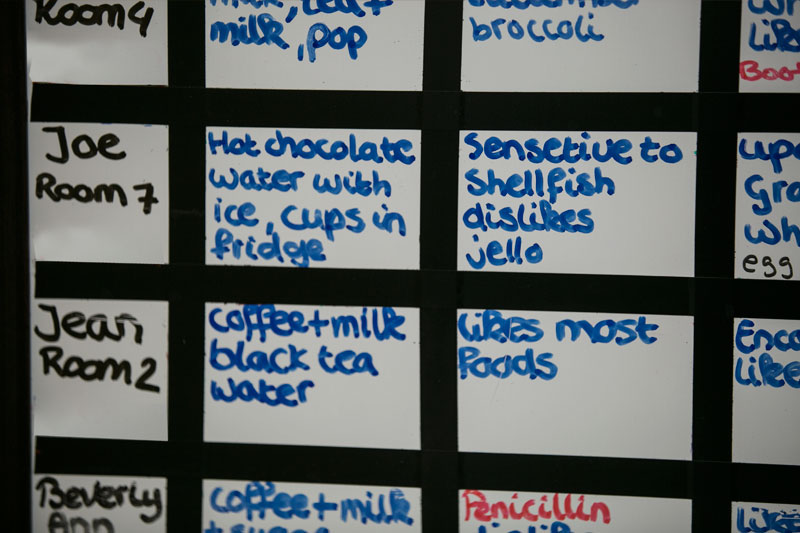 Room 4
milk, pop
broccoli
Like
Joe
Room 7
Hot chocolate
water with
ice, cups in
fridge
Sensetive to
Shellfish
dislikes
jello
egg
Jean
Room 2
coffee+milk
black tea
water
Likes most
foods
Like
Beverly
Ann
coffee+milk
Penicillin